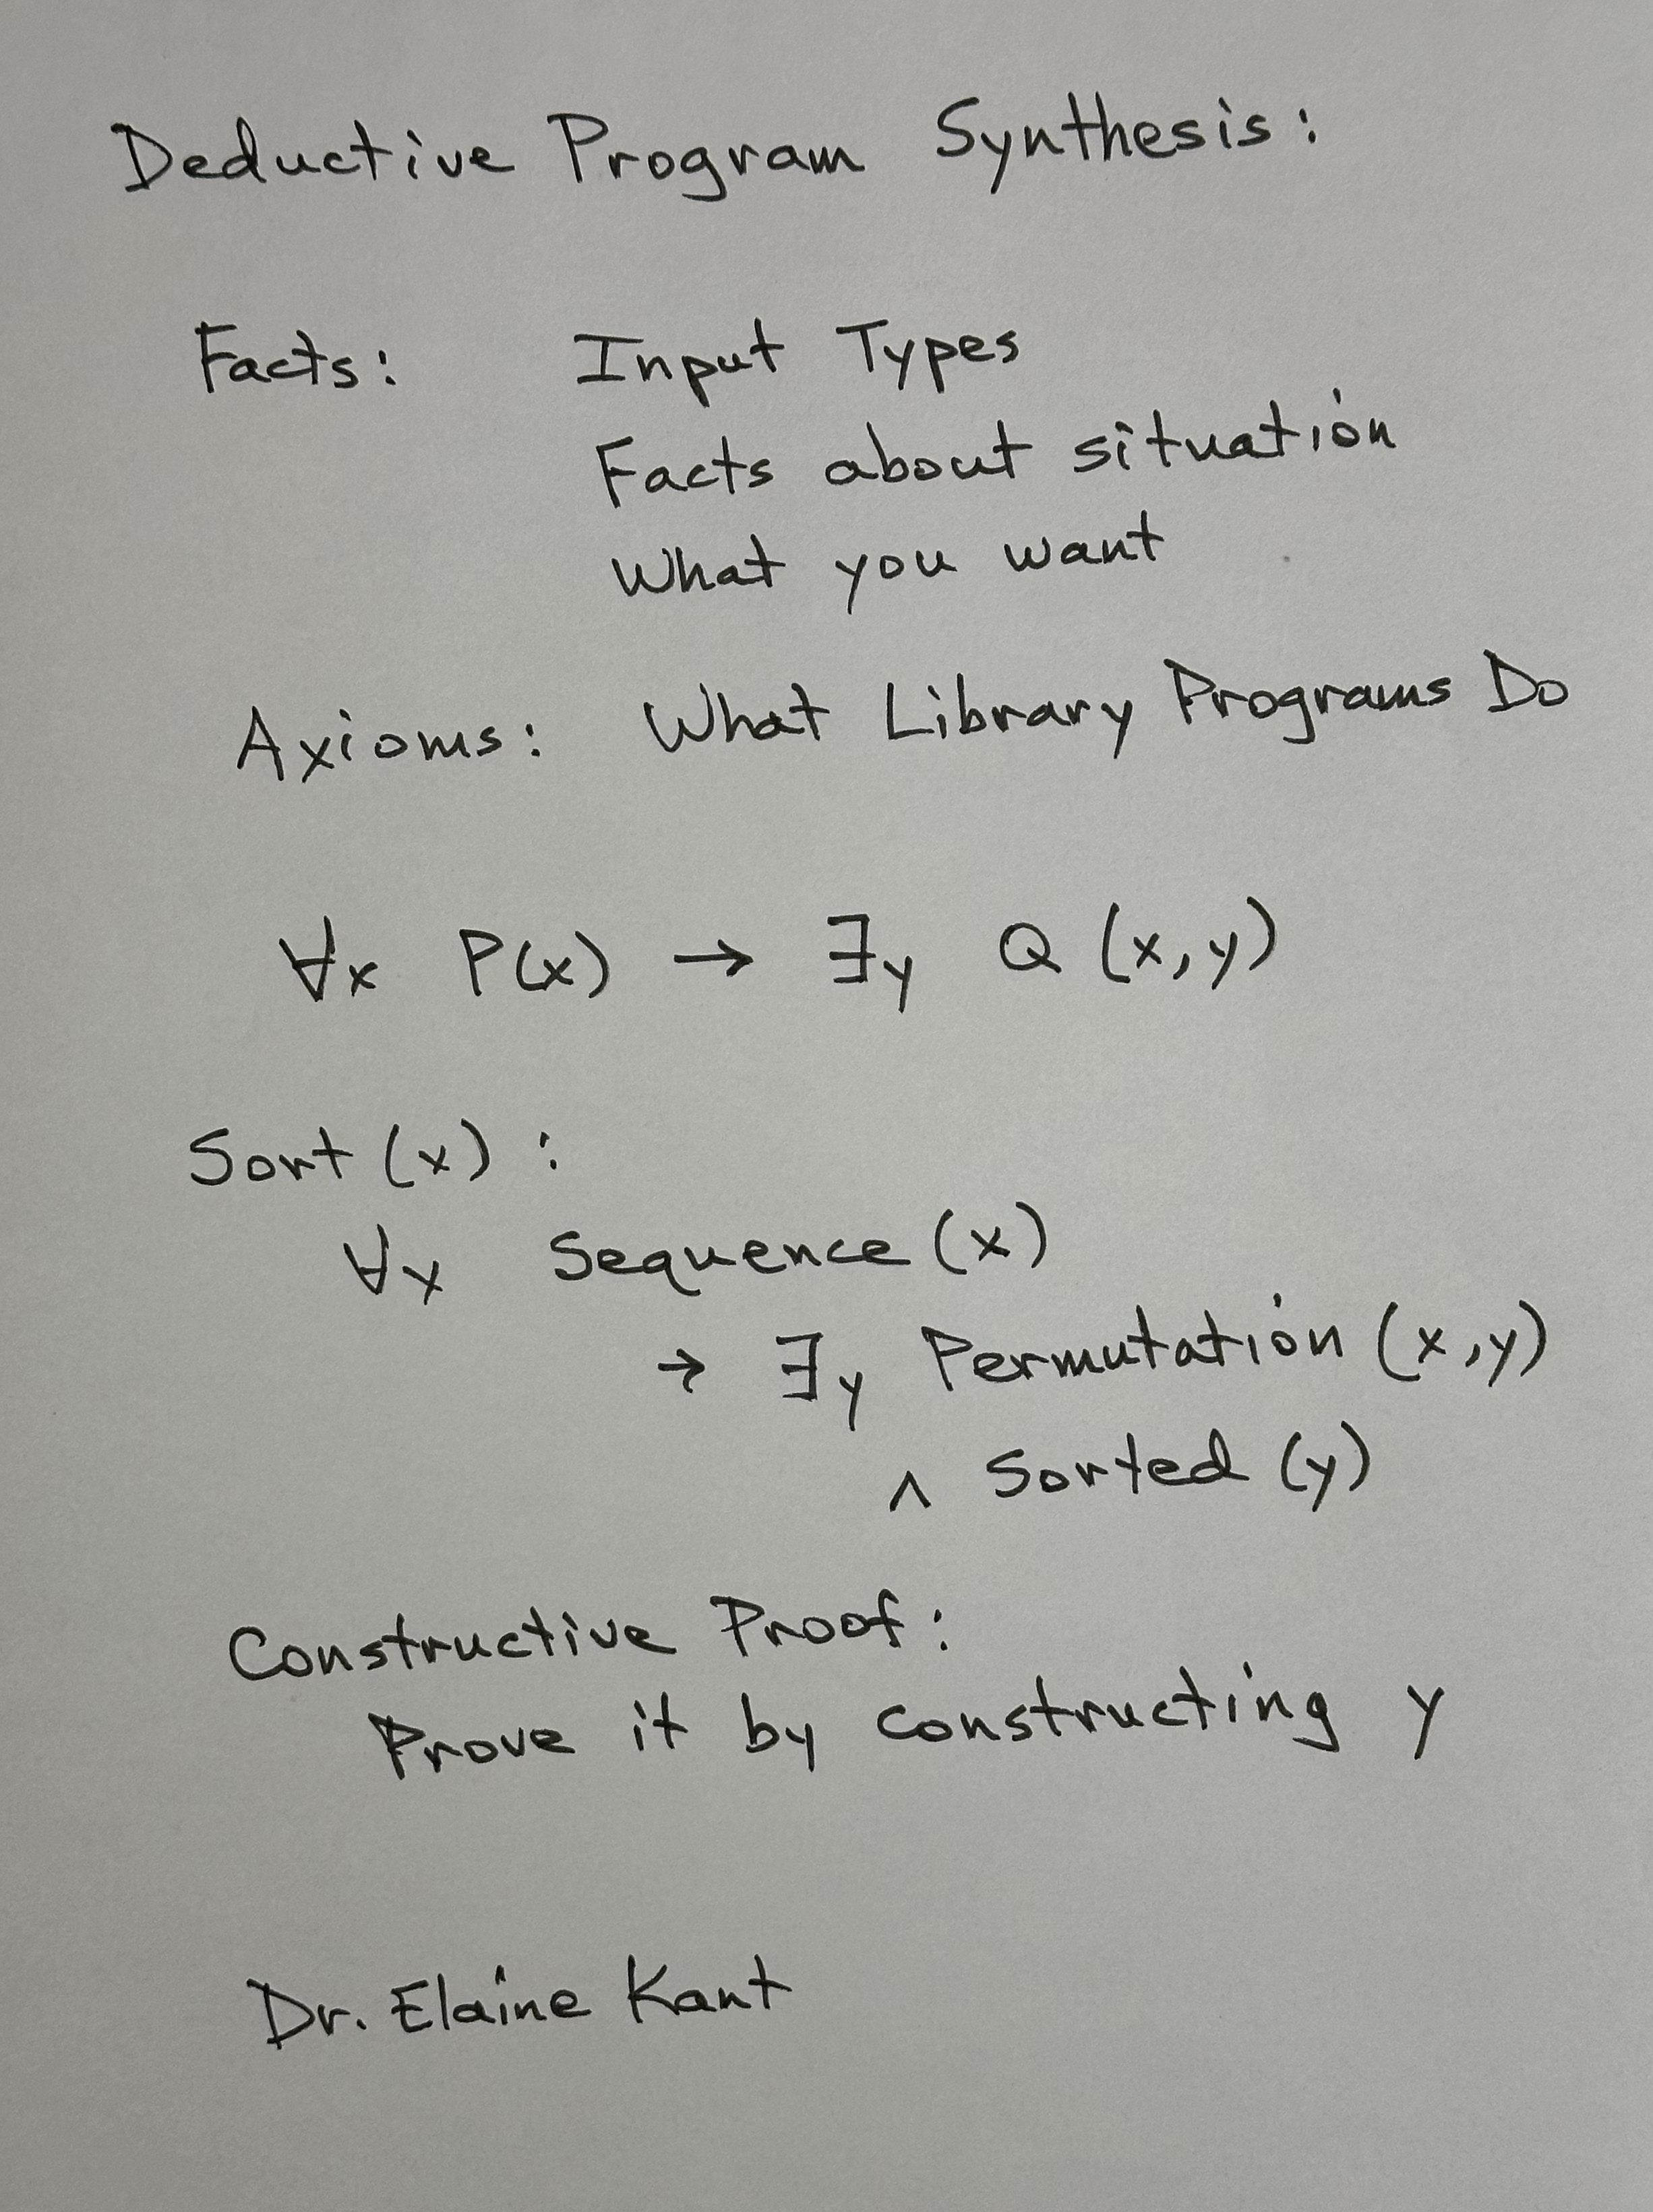 Deductive Program Synthesis:
Facts: Input Types
Facts about situation
What you want
Axioms: What Library Programs Do
∀x P(x) → ∃y Q (x,y)
Sort (x) :
∀x Sequence (x)
→ ∃y Permutation (x,y)
∧ Sorted (y)
Constructive Proof:
Prove it by constructing y
Dr. Elaine Kant